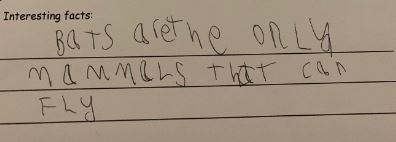 Interesting facts:
Bats are the ONLY
mammals that can
FLY